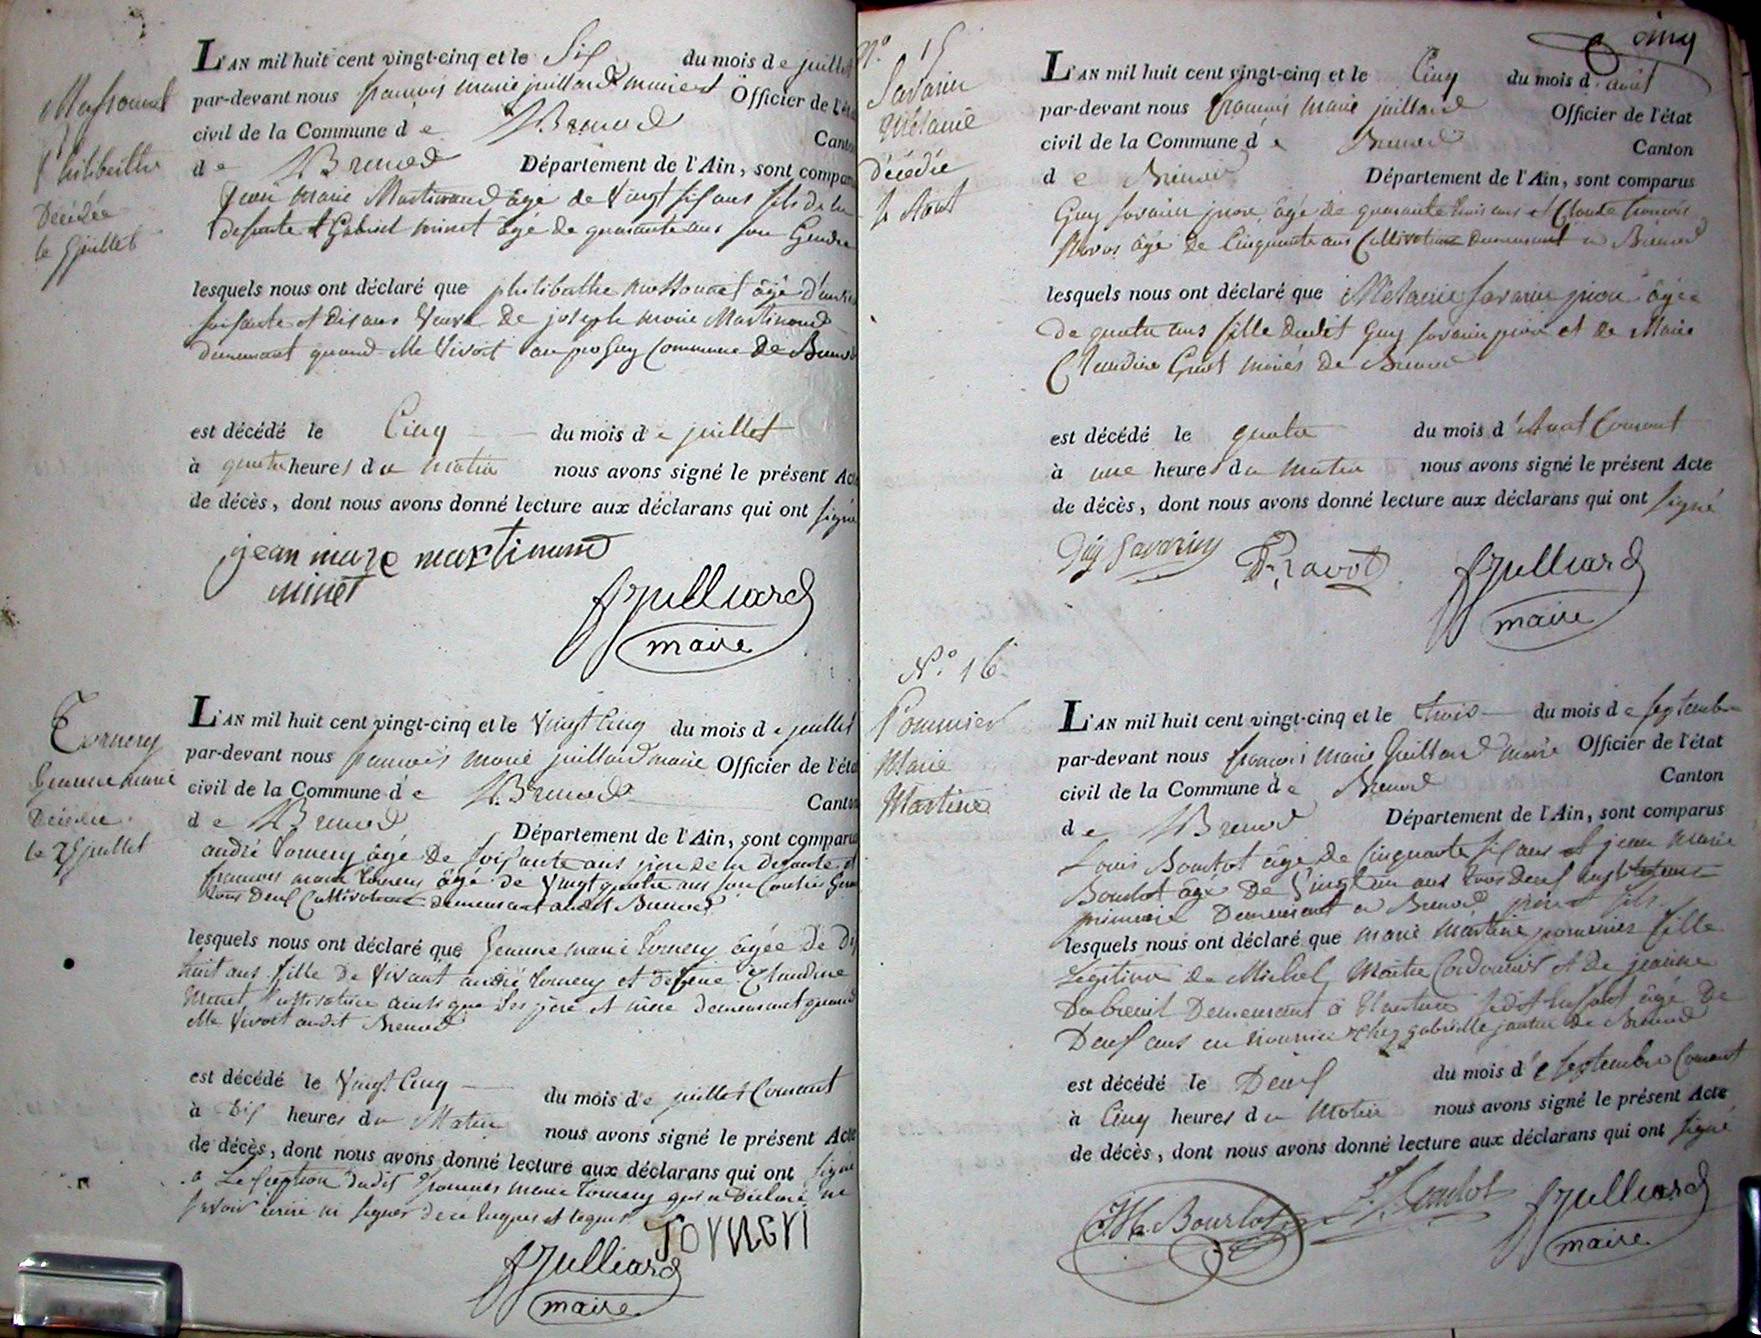 Massonnet
Philiberthe
Décédée
le 5 juillet
L'AN mil huit cent vingt-cinq et le Six du mois de juillet
par-devant nous françois marie juillard maire Officier de l'éta
civil de la Commune de Brenod Canton
de Brenod Département de l'Ain, sont comparu
jean marie Martinand âgé de vingt six ans fils de la
defunte et Gabriel minet âgé de quarante ans son Gendre
lesquels nous ont déclaré que philiberthe massonnet âgé d'env
soixante et dix ans Veuve de joseph marie Martinand
demeurant quand elle Vivoit au Commune De Brenod
est décédé le Cinq du mois de juillet
à quatre heures du matin nous avons signé le présent Acte
de décès, dont nous avons donné lecture aux déclarans qui ont signé
jean marie martinand
minet
Julliard
maire
Tornery
jeanne marie
Décédée
le 25 juillet
L'AN mil huit cent vingt-cinq et le Vingt Cinq du mois de juillet
par-devant nous françois marie juillard maire Officier de l'éta
civil de la Commune de Brenod Canton
de Brenod Département de l'Ain, sont comparu
andré tornery âgé De soixante ans pere de la Defunte et
françois marie tornery âgé de Vingt quatre ans son
tous deux Cultivateurs demeurant audit Brenod
lesquels nous ont déclaré que jeanne marie tornery âgée de Dix
huit ans fille De Vivant andré tornery et Claudine
Minet Cultivatrice ainsi que ses père et mère demeurant quand
elle Vivoit audit Brenod
est décédé le Vingt Cinq du mois de juillet Courant
à Dix heures du Matin nous avons signé le présent Acte
de décès, dont nous avons donné lecture aux déclarans qui ont signé
a L'exception dudit françois marie tornery qui a Déclaré ne
savoir écrire ni signer de ce enquis et requis
TORNERI
Julliard
maire
cinq
N.º 15
Savarin
Mélanie
Décédée
4 Aout
L'AN mil huit cent vingt-cinq et le Cinq du mois d' aout
par-devant nous françois marie juillard Officier de l'état
civil de la Commune de Brenod Canton
de Brenod Département de l'Ain, sont comparus
Guy savarin âgé de quarante trois ans et Claude françois
Ravot âgé de Cinquante ans Cultivateurs demeurant à Brenod
lesquels nous ont déclaré que Mélanie savarin âgée
de quatre ans fille dudit Guy savarin et de Marie
Claudine mariés de Brenod
est décédé le quatre du mois d'Aout Courant
à une heures du matin nous avons signé le présent Acte
de décès, dont nous avons donné lecture aux déclarans qui ont signé
Guy Savarin
Ravot
Julliard
maire
N.º 16
Pommier
Marie
Martine
L'AN mil huit cent vingt-cinq et le trois du mois de septembre
par-devant nous françois marie Juillard maire Officier de l'état
civil de la Commune de Brenod Canton
de Brenod Département de l'Ain, sont comparus
Louis Bourbot âgé de Cinquante six ans et jean marie
Bourbot âgé De Vingt un ans tous deux instituteurs
primaire Demeurant à Brenod père et fils
lesquels nous ont déclaré que marie martine pommier fille
Légitime de Michel Maitre Cordonnier et De jeanne
Dubreuil Demeurant à Nantua ledit Enfant âgé De
Deux ans en nourrice chez gabrielle de Brenod
est décédé le Deux du mois de septembre Courant
à Cinq heures du Matin nous avons signé le présent Acte
de décès, dont nous avons donné lecture aux déclarans qui ont signé
J.M. Bourbot
Bourbot
Julliard
maire